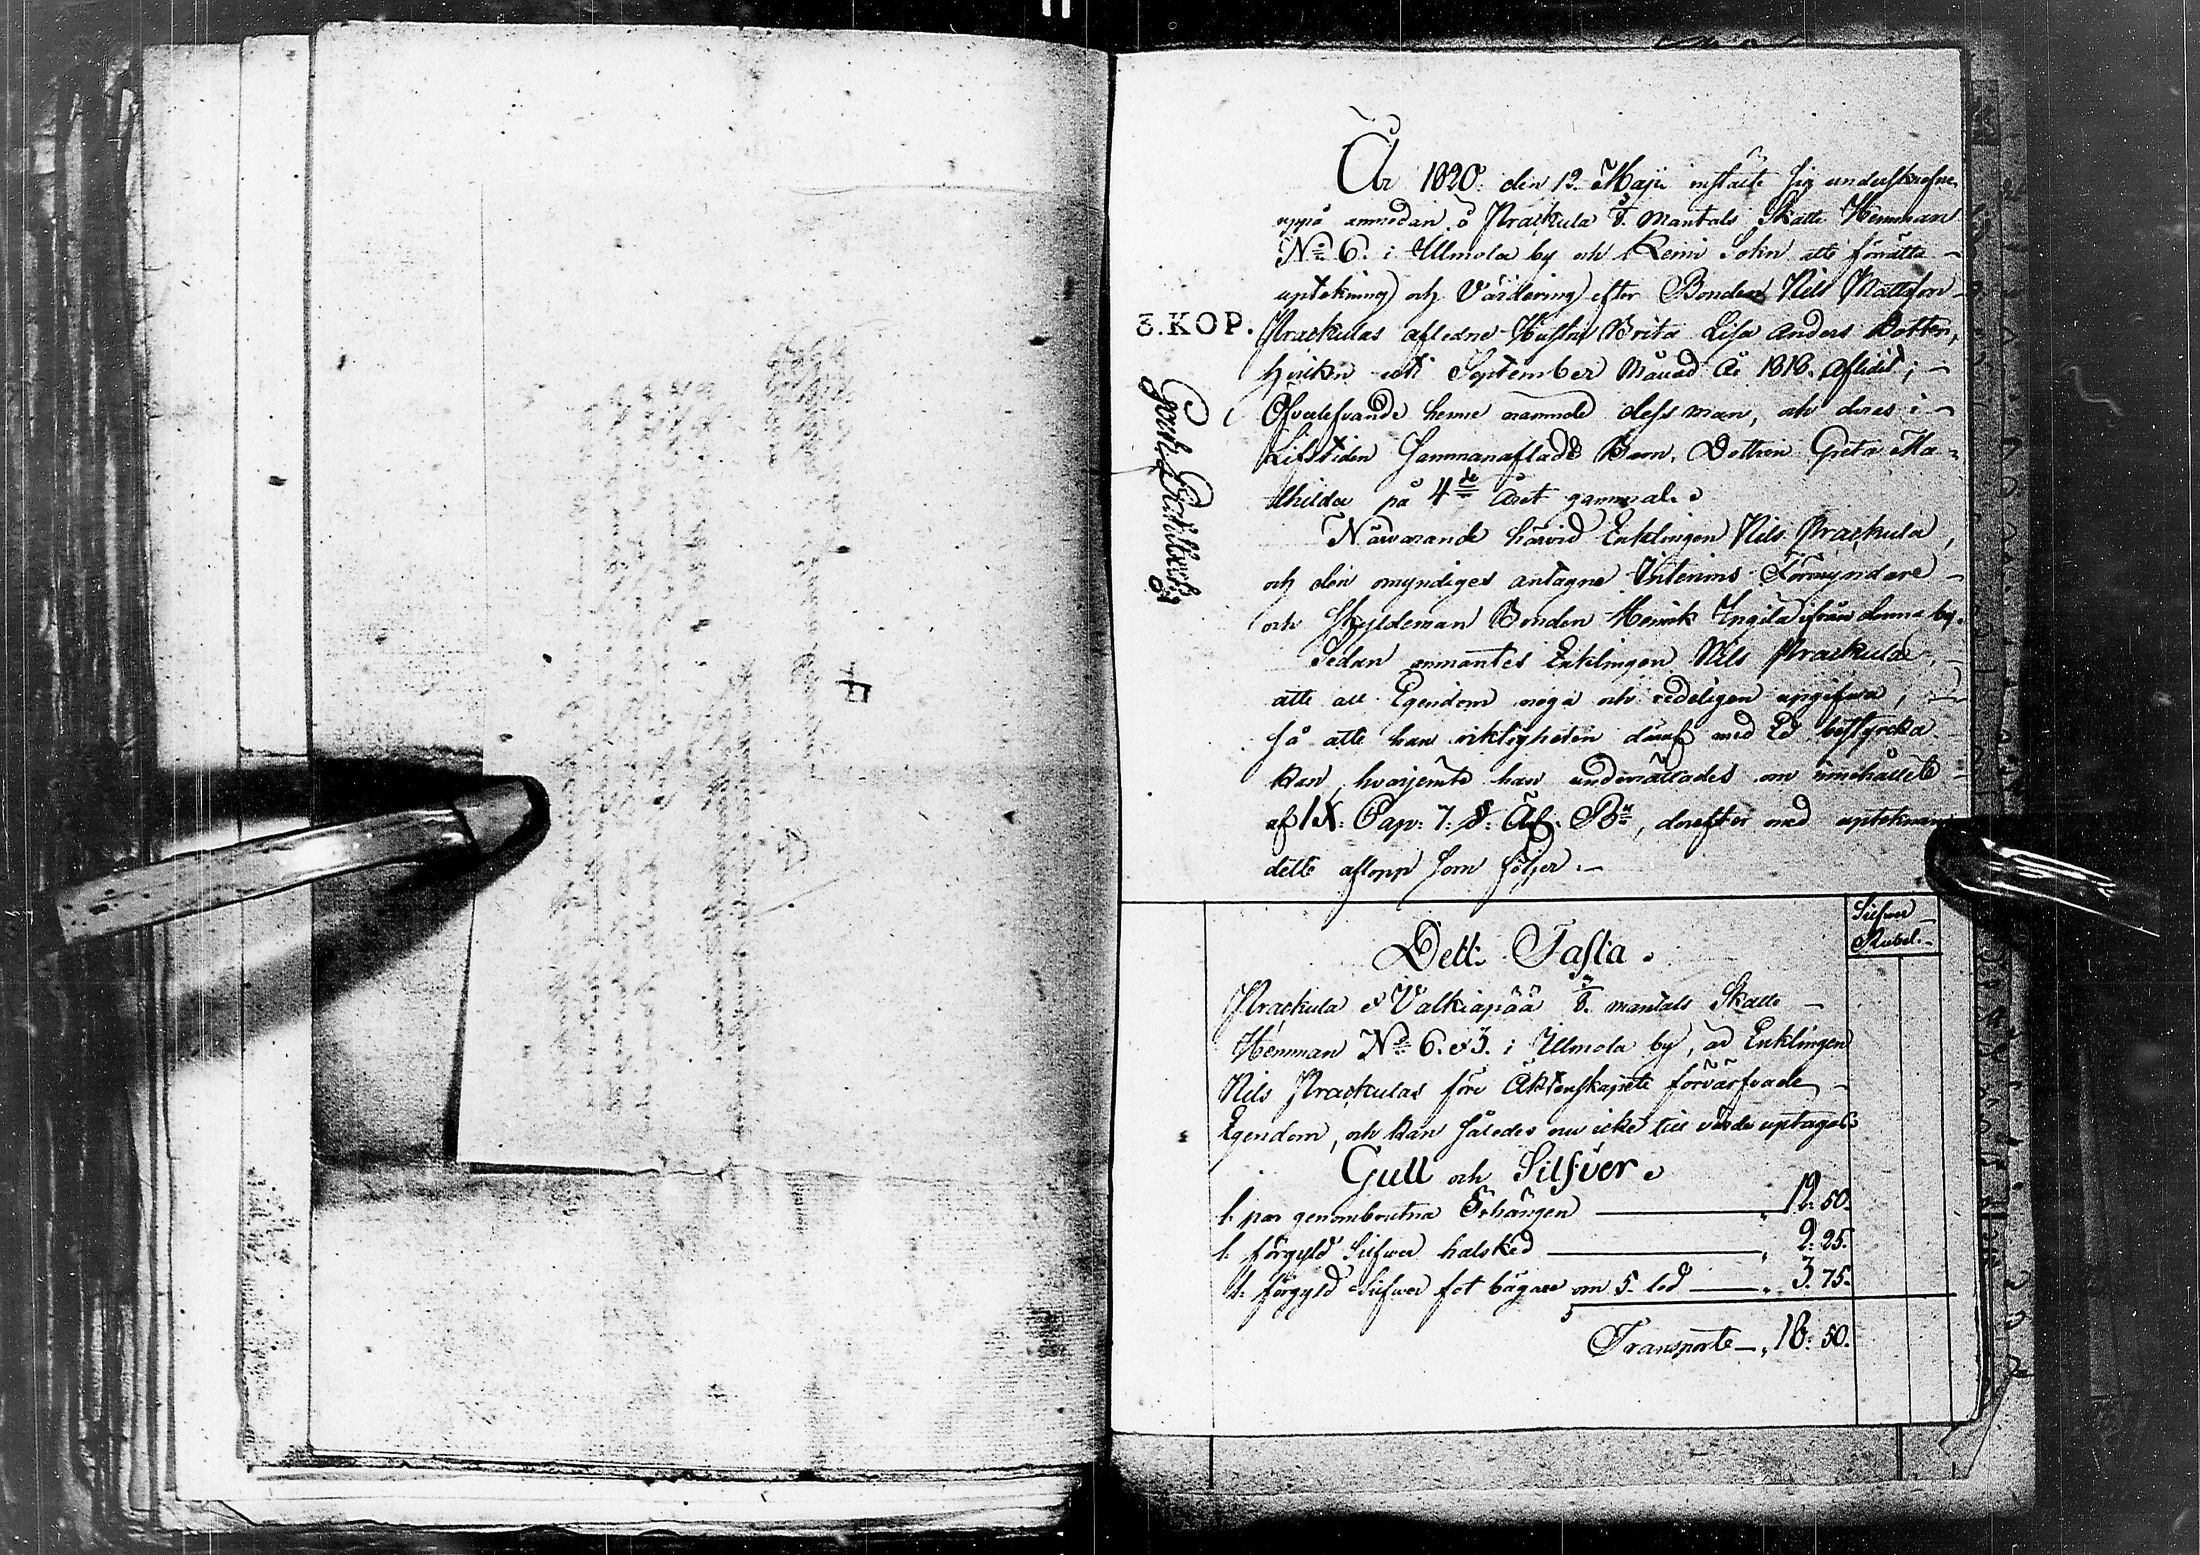 År 1820. den 12. Maji instälte sig underskrefne
uppå anmodan å Prackula mantals Skatte Hemman
No 6. i Illmola by och Kemi Sokn att förrätta
uptekning och Värdering efter Bonden Nils Mattsson
3.KOP.
Prackulas aflidne Hustru Brita Lisa Anders Dotter,
hvilken uti September Månad År 1818. Aflidit;
Öfverlefvande henne nämnde dess man, och deras i
Lifstiden Sammanaflade Barn, Dottren Greta Ma-
thilda på 4de Året gammal.
Närvarande härvid Enklingen Nils Prackula,
och den omyndiges antagne Interims Förmyndare
och Skyldeman Bonden Henrik Ingila ifrån denna by.
Sedan anmantes Enklingen Nils Prackula,
att all Egendom noga och redeligen upgifva,
så att han riktigheten däraf med Ed bestyrcka
kan, hvarjemte han underrättades om innehållet
af IX. Cap: 7. §. Äf. Bn, derefter med uptekningen
dette aflopp som följer.
Silfver
Rubel.
Dett Fasta.
Prackula & Valkiapää mantals Skatte
Hemman No 6. & 3. i Illmola by, är Enklingen
Nils Prackulas före Äktenskapet förvärfvade
Egendom, och kan således nu icke till värde uptagas
Gull och Silfver.
1. par genombrutna Örhängen 12:50.
1. förgyld Silfver halsked 2:25.
1. förgyld Silfver fot bägare om 5 lod 3:75.
Transporte 18:50.